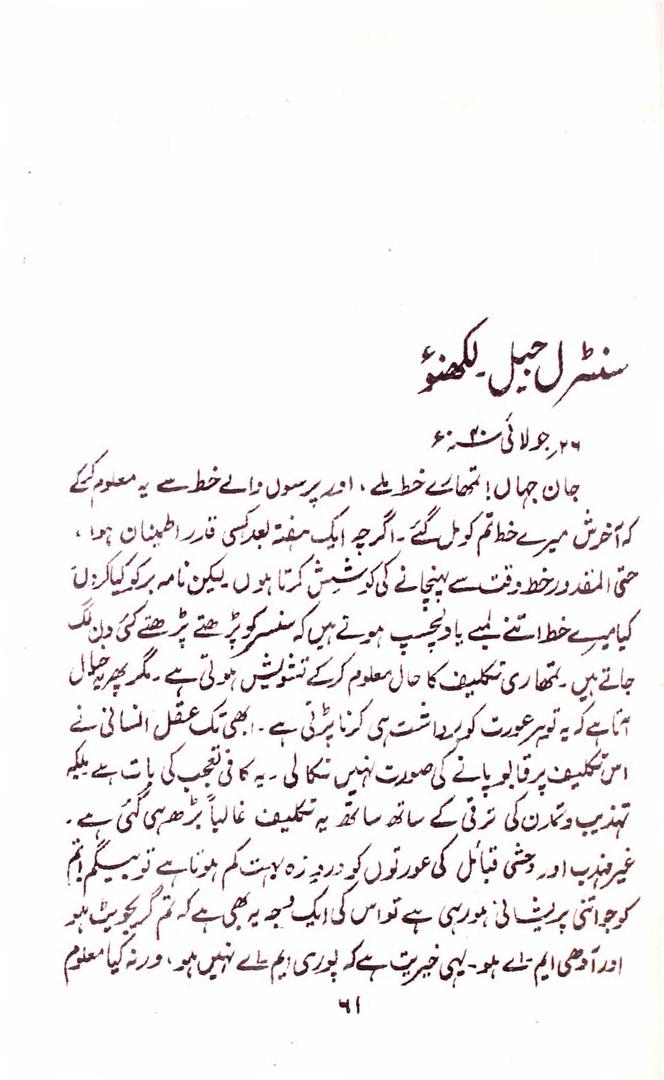 سنٹرل جیل۔ لکھنؤ
۲۶؍ جولائی ۴۰ء
جان جہاں! تمھارے خط ملے، اور پرسوں والے خط سے یہ معلوم کرکے
کہ آخرش میرے خط تم کو مل گئے۔ اگرچہ ایک ہفتہ بعد کسی قدر اطمینان ہوا،
حتی المقدور خط وقت سے پہنچانے کی کوشش کرتا ہوں۔ لیکن نامہ بر کو کیا کروں
کیا میرے خط اتنے لمبے یا دلچسپ ہوتے ہیں کہ سنسر کو پڑھتے پڑھتے کئی دن لگ
جاتے ہیں۔ تمھاری تکلیف کا حال معلوم کرکے تشویش ہوتی ہے۔ مگر پھر یہ خیال
آتا ہے کہ یہ تو ہر عورت کو برداشت ہی کرنا پڑتی ہے۔ ابھی تک عقل انسانی نے
اس تکلیف پر قابو پانے کی صورت نہیں نکالی۔ یہ کافی تعجب کی بات ہے بلکہ
تہذیب و تمدن کی ترقی کے ساتھ ساتھ یہ تکلیف غالباً بڑھ ہی گئی ہے۔
غیر مہذب اور وحشی قبائل کی عورتوں کو درد زہ بہت کم ہوتا ہے تو بیگم! تم
کو جو اتنی پریشانی ہو رہی ہے تو اس کی ایک وجہ یہ بھی ہے کہ تم گریجویٹ ہو
اور آدھی ایم۔اے ہو۔ یہی خیریت ہے کہ پوری ایم۔اے نہیں ہو، ورنہ کیا معلوم
۶۱